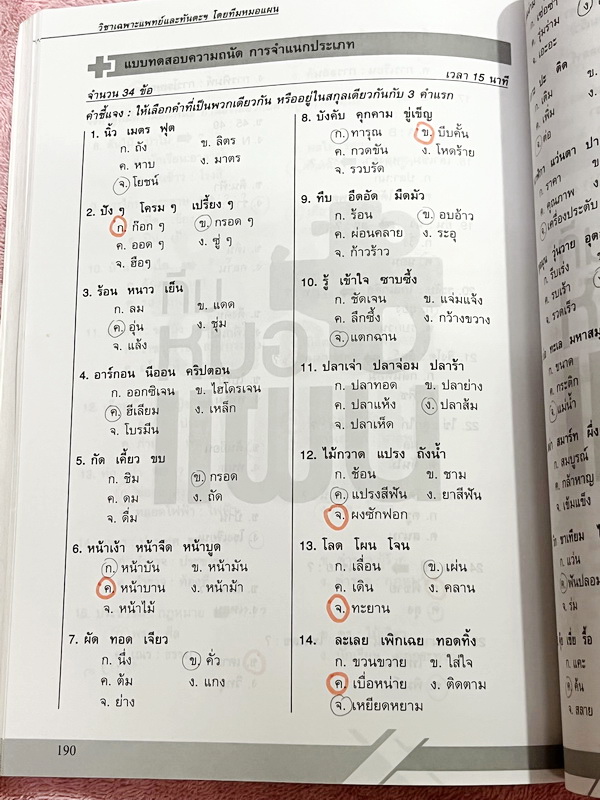 วิชาเฉพาะแพทย์และทันตะฯ โดยทีมหมอแผน
แบบทดสอบความถนัด การจำแนกประเภท
จำนวน 34 ข้อ
เวลา 15 นาที
คำชี้แจง : ให้เลือกคำที่เป็นพวกเดียวกัน หรืออยู่ในสกุลเดียวกันกับ 3 คำแรก
1. นิ้ว เมตร ฟุต
ก. ถัง ข. ลิตร
ค. หาบ ง. มาตร
จ. โยชน์
2. ปัง ๆ โครม ๆ เปรี้ยง ๆ
ก. ก๊อก ๆ ข. กรอด ๆ
ค. ออด ๆ ง. ซู่ ๆ
จ. ฮือๆ
3. ร้อน หนาว เย็น
ก. ลม ข. แดด
ค. อุ่น ง. ชุ่ม
จ. แล้ง
4. อาร์กอน นีออน คริปตอน
ก. ออกซิเจน ข. ไฮโดรเจน
ค. ฮีเลียม ง. เหล็ก
จ. โบรมีน
5. กัด เคี้ยว ขบ
ก. ชิม ข. กรอด
ค. ดม ง. ถัด
จ. ดื่ม
6. หน้าเง้า หน้าจืด หน้าบูด
ก. หน้าบัน ข. หน้ามัน
ค. หน้าบาน ง. หน้าม้า
จ. หน้าไม้
7. ผัด ทอด เจียว
ก. นึ่ง ข. คั่ว
ค. ต้ม ง. แกง
จ. ย่าง
8. บังคับ คุกคาม ขู่เข็ญ
ก. ทารุณ ข. บีบคั้น
ค. กวดขัน ง. โหดร้าย
จ. รวบรัด
9. ทึบ อึดอัด มืดมัว
ก. ร้อน ข. อบอ้าว
ค. ผ่อนคลาย ง. ระอุ
จ. ก้าวร้าว
10. รู้ เข้าใจ ซาบซึ้ง
ก. ชัดเจน ข. แจ่มแจ้ง
ค. ลึกซึ้ง ง. กว้างขวาง
จ. แตกฉาน
11. ปลาเจ่า ปลาจ่อม ปลาร้า
ก. ปลาทอด ข. ปลาย่าง
ค. ปลาแห้ง ง. ปลาส้ม
จ. ปลาเห็ด
12. ไม้กวาด แปรง ถังน้ำ
ก. ช้อน ข. ชาม
ค. แปรงสีฟัน ง. ยาสีฟัน
จ. ผงซักฟอก
13. โลด โผน โจน
ก. เลื่อน ข. เผ่น
ค. เดิน ง. คลาน
จ. ทะยาน
14. ละเลย เพิกเฉย ทอดทิ้ง
ก. ขวนขวาย ข. ใส่ใจ
ค. เบื่อหน่าย ง. ติดตาม
จ. เหยียดหยาม
190
ทีม
หมอ
แผน